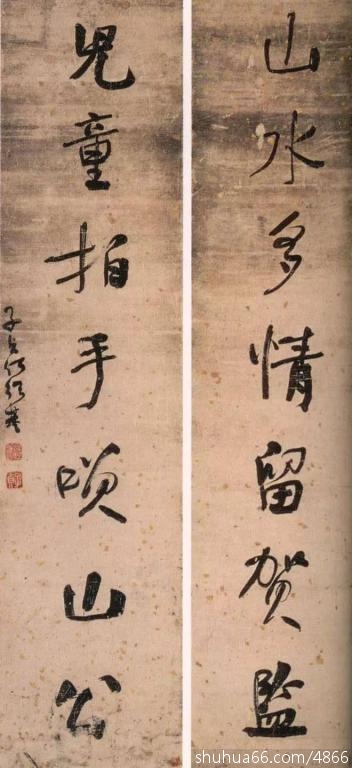 山水多情留賀監
兒童拍手咲山公
子貞何紹基
shuhua66.com/4866